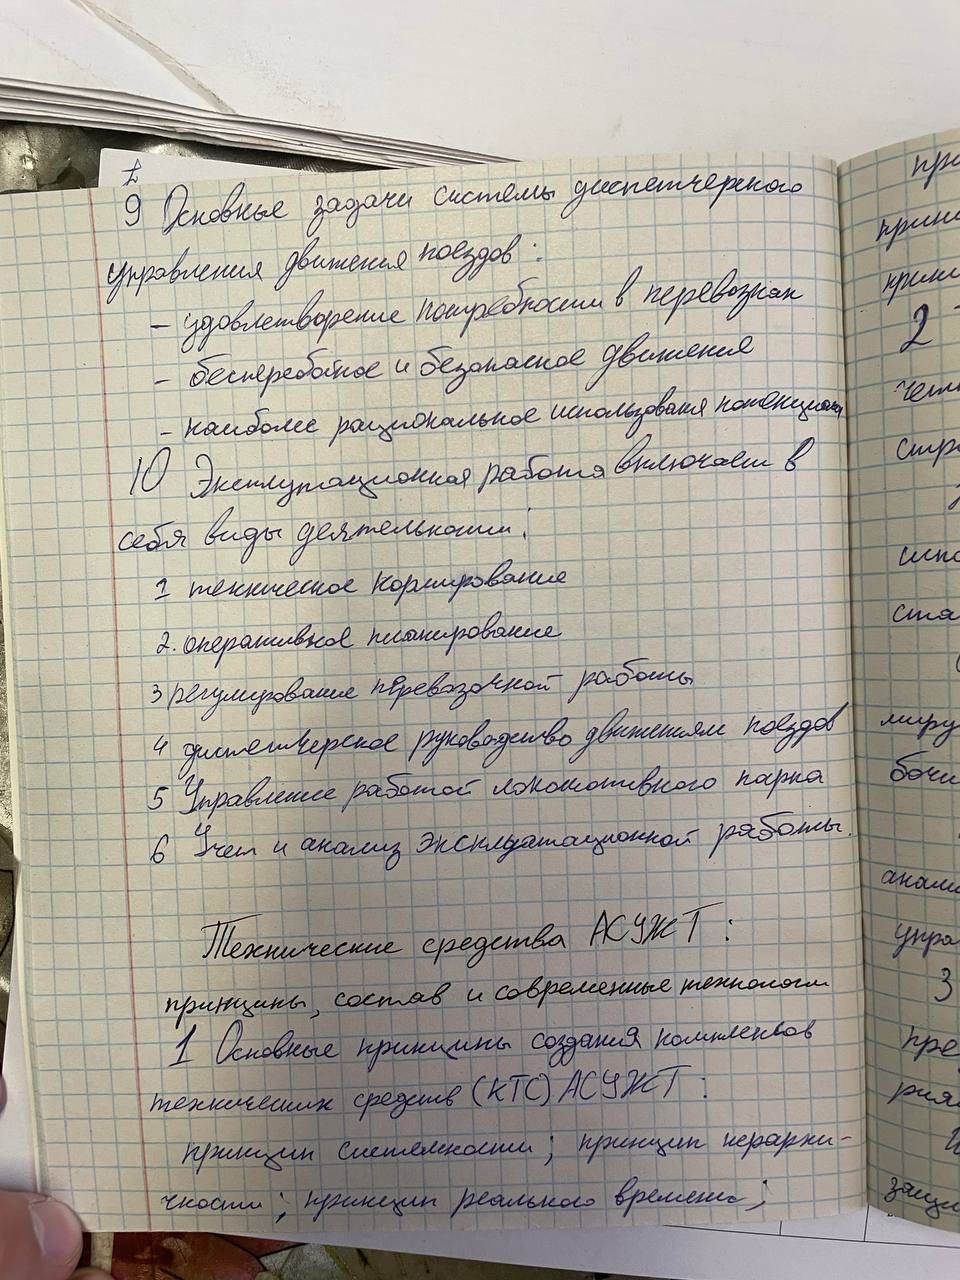 9 Основные задачи системы диспетчерского
управления движения поездов:
- удовлетворение потребности в перевозках
- бесперебойное и безопасное движения
- наиболее рациональное использованя потенциала
10 Эксплутационная работа включает в
себя виды деятельности:
1 техническое нормирование
2. оперативное планирование
3 регулирование перевозочной работы
4 диспетчерское руководство движением поездов
5 Управление работой локомотивного парка
6 Учет и анализ эксплуатационной работы.
Технические средства АСУЖТ:
принципы, состав и современные технологии
1 Основные принципы создания комплексов
технических средств (КТС) АСУЖТ:
принцип системности; принцип иерархи-
чности; принцип реального времени;
при
2
3